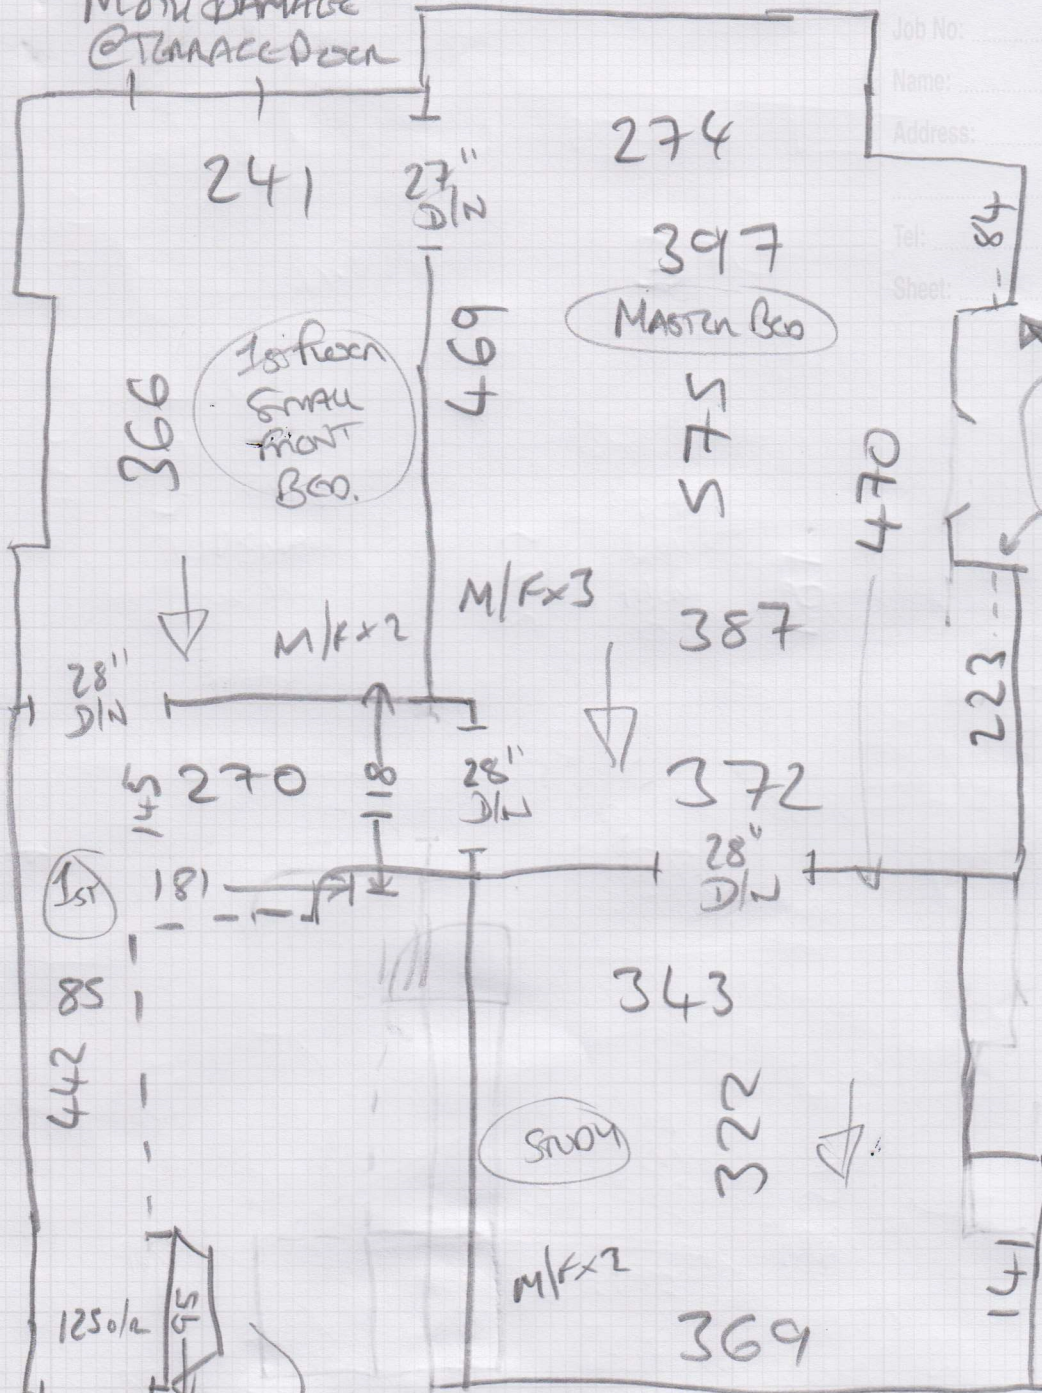 MOTH DAMAGE
@TERRACE DOOR
Job No:
Name:
Address:
Tel:
Sheet:
241
27"
D/N
274
397
84
MASTER BED
469
1st Floor
SMALL
FRONT
BED.
366
575
470
M/Fx2
M/Fx3
387
223
28"
D/N
145
270
118
28"
D/N
372
28"
D/N
1st
181
85
442
343
322
STUDY
M/Fx2
141
125 o/a
GS
369